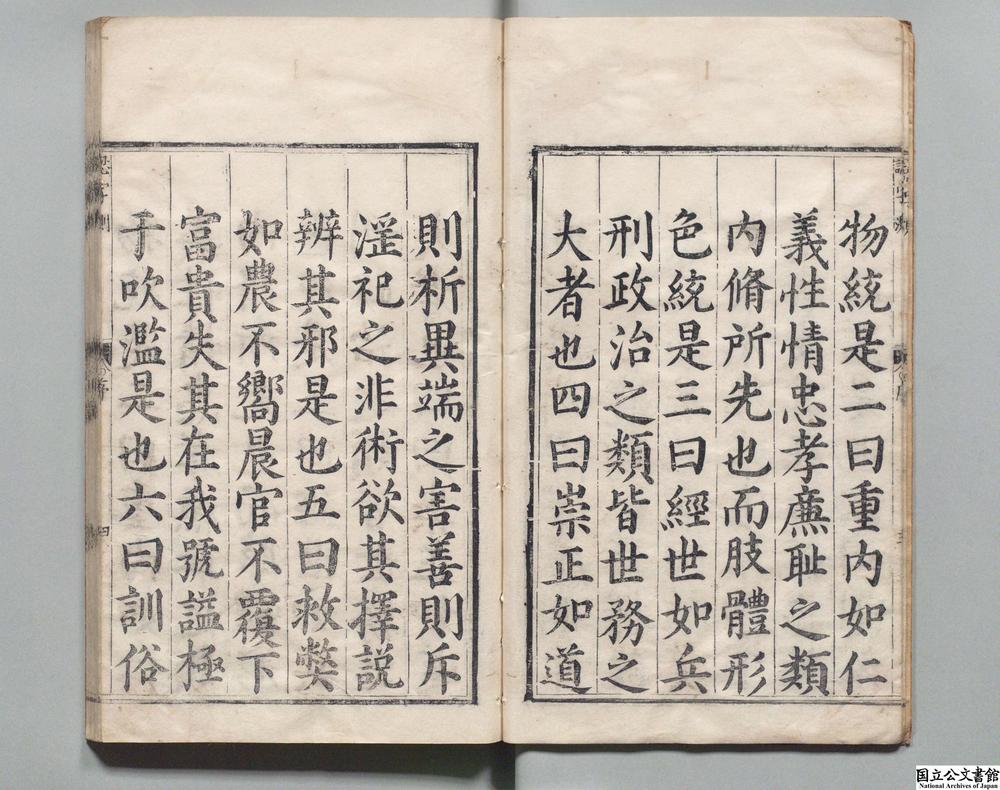 物統是二曰重内如仁
義性情忠孝廉耻之類
内脩所先也而肢體形
色統是三曰經世如兵
刑政治之類皆世務之
大者也四曰崇正如道
則析異端之害善則斥
淫祀之非術欲其擇説
辨其邪是也五曰救獘
如農不嚮晨官不覆下
富貴失其在我號謚極
于吹濫是也六曰訓俗
四
国立公文書館
National Archives of Japan